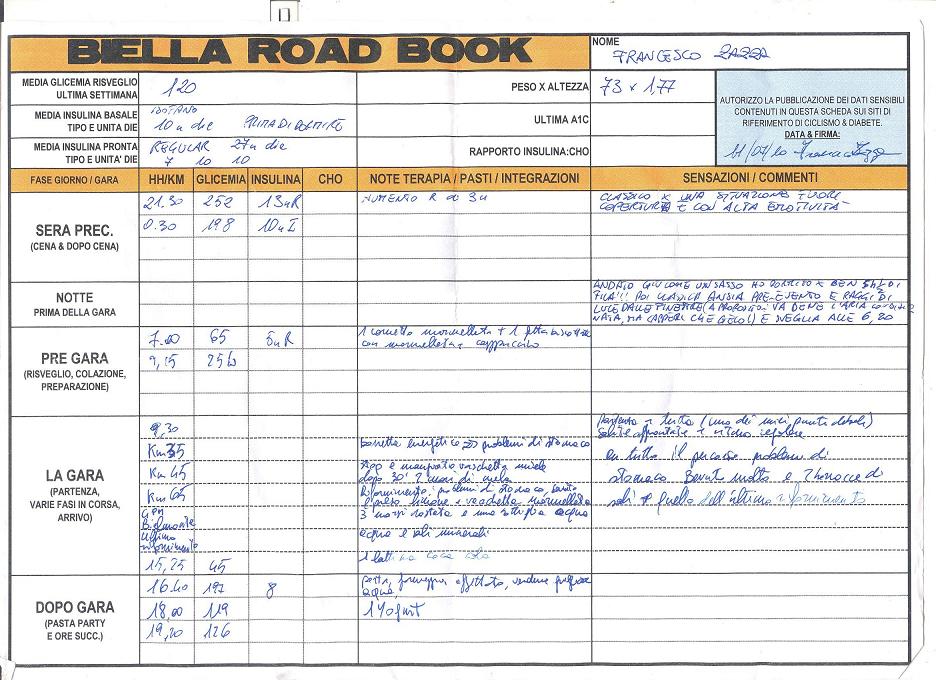 BIELLA ROAD BOOK
NOME
FRANCESCO
MEDIA GLICEMIA RISVEGLIO
ULTIMA SETTIMANA
120
PESO X ALTEZZA
73 x 1,77
MEDIA INSULINA BASALE
TIPO E UNITA DIE
10 u die PRIMA DI DORMIRE
ULTIMA A1C
MEDIA INSULINA PRONTA
TIPO E UNITA' DIE
REGULAR 27u die
7 10 10
RAPPORTO INSULINA:CHO
AUTORIZZO LA PUBBLICAZIONE DEI DATI SENSIBILI
CONTENUTI IN QUESTA SCHEDA SUI SITI DI
RIFERIMENTO DI CICLISMO & DIABETE.
DATA & FIRMA:
11/07/10 Francesco
FASE GIORNO / GARA HH/KM GLICEMIA INSULINA CHO NOTE TERAPIA / PASTI / INTEGRAZIONI SENSAZIONI / COMMENTI
SERA PREC.
(CENA & DOPO CENA)
21.30 252 13uR AUMENTO R di 3u
CLASSICO X UNA SITUAZIONE FUORI
COPERTURA E CON ALTA EMOTIVITA'
0.30 198 10uI
NOTTE
PRIMA DELLA GARA
ANDATO GIU' COME UN SASSO HO DORMITO X BEN 5h 1/2 DI
FILA!!! POI CLASSICA ANSIA PRE-EVENTO E RAGGI DI
LUCE DALLE FINESTRE (A PROPOSITO: VA BENE L'ARIA CONDIZIO
NATA, MA CAPPERI CHE GELO!) E SVEGLIA ALLE 6,20
PRE GARA
(RISVEGLIO, COLAZIONE,
PREPARAZIONE)
7.00 65 5uR
1 cornetto marmellata + 1 fetta
con marmellata + cappuccino
9,15 256
LA GARA
(PARTENZA,
VARIE FASI IN CORSA,
ARRIVO)
9,30
Partenza a tutta (uno dei miei punti deboli)
Km 35
barretta energetica => problemi di stomaco
in tutto il percorso problemi di
Km 45
vaschetta miele
dopo 30' 2 morsi di mela
stomaco. Bevuto molto e
Km 65
Rifornimento: problemi di stomaco, bevuto
limone + vaschetta marmellata
3 morsi crostata e una acqua
sali + quello dell'ultimo rifornimento
GPM
Bielmonte
acqua e sali minerali
Ultimo
rifornimento
1 lattina coca cola
15,25 45
DOPO GARA
(PASTA PARTY
E ORE SUCC.)
16.40 197 8
pasta, formaggio, affettato, verdure
acqua
18,00 119
1 Yogurt
19,20 126